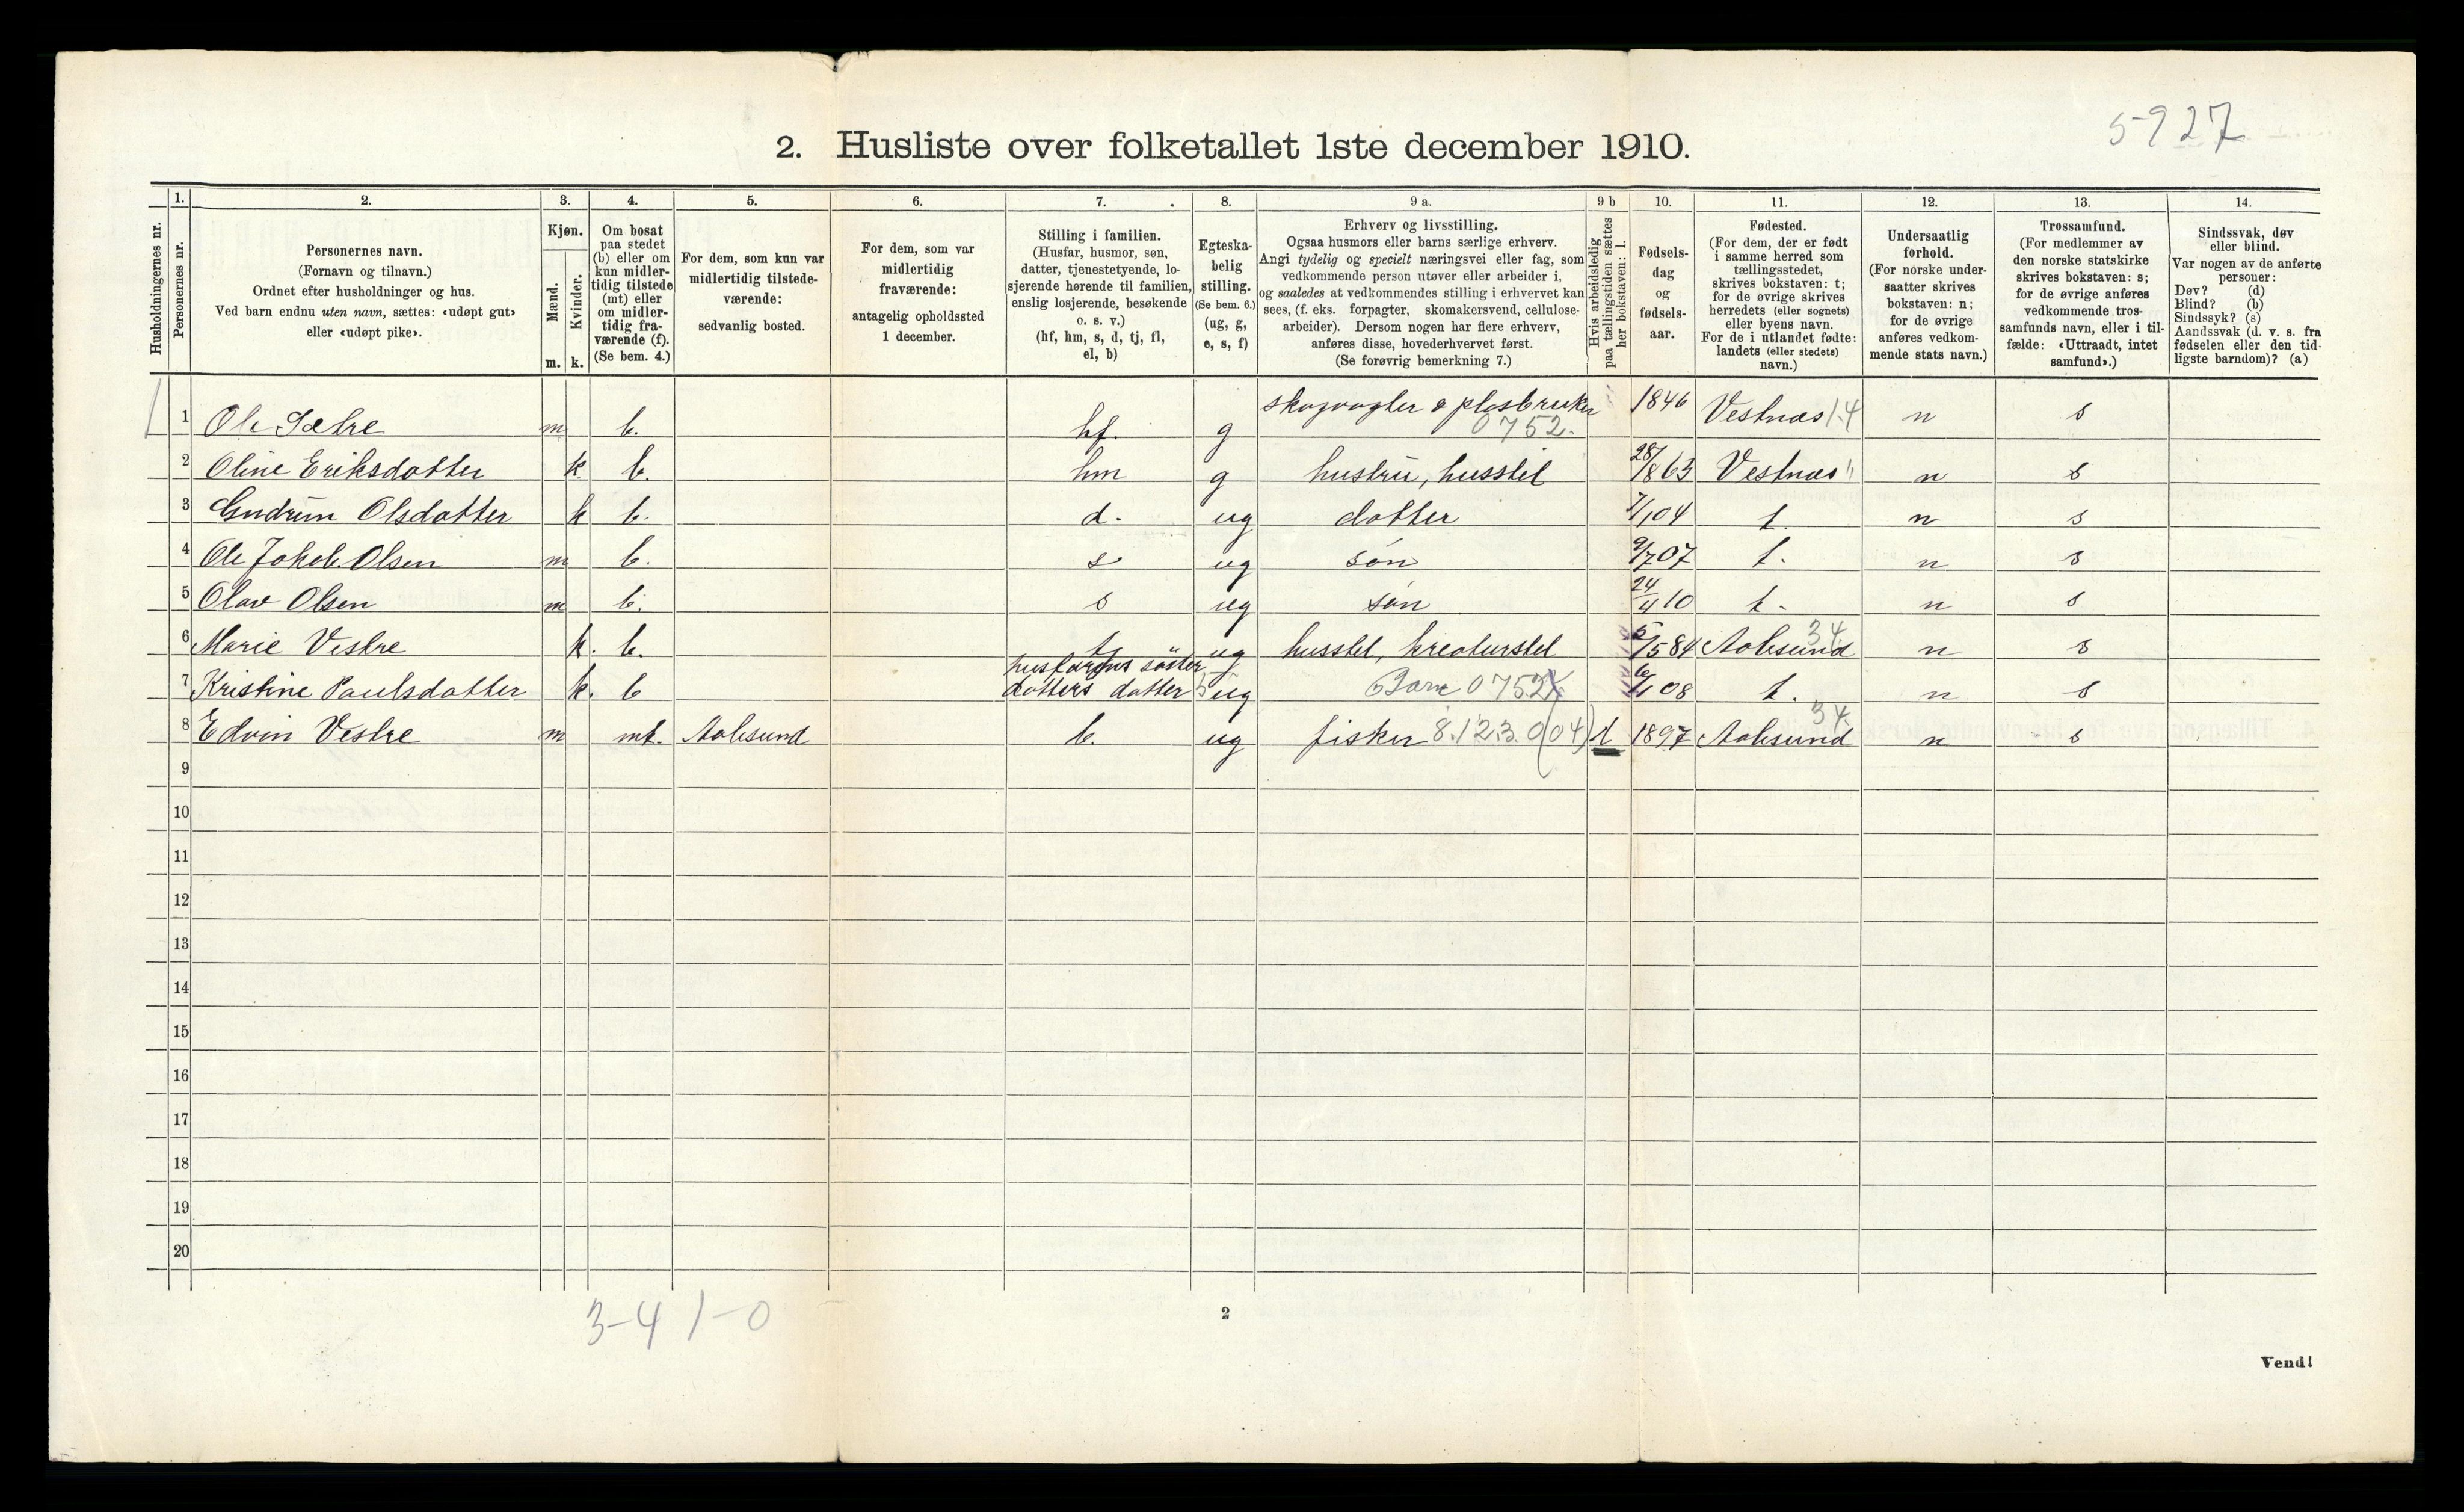 5927
2. Husliste over folketallet 1ste december 1910.
1. 2. 3. 4. 5. 6. 7. 8. 9 a. 9 b 10. 11. 12. 13. 14.
Husholdningernes nr.
Personernes nr.
Personernes navn.
(Fornavn og tilnavn.)
Ordnet efter husholdninger og hus.
Ved barn endnu uten navn, sættes: «udøpt gut»
eller «udøpt pike».
Kjøn.
Mænd.
Kvinder.
m. k.
Om bosat
paa stedet
(b) eller om
kun midler-
tidig tilstede
(mt) eller
om midler-
tidig fra-
værende (f).
(Se bem. 4.)
For dem, som kun var
midlertidig tilstede-
værende:
sedvanlig bosted.
For dem, som var
midlertidig
fraværende:
antagelig opholdssted
1 december.
Stilling i familien.
(Husfar, husmor, søn,
datter, tjenestetyende, lo-
sjerende hørende til familien,
enslig losjerende, besøkende
o. s. v.)
(hf, hm, s, d, tj, fl,
el, b)
Egteska-
belig
stilling.
(Se bem. 6.)
(ug, g,
e, s, f)
Erhverv og livsstilling.
Ogsaa husmors eller barns særlige erhverv.
Angi tydelig og specielt næringsvei eller fag, som
vedkommende person utøver eller arbeider i,
og saaledes at vedkommendes stilling i erhvervet kan
sees, (f. eks. forpagter, skomakersvend, cellulose-
arbeider). Dersom nogen har flere erhverv,
anføres disse, hovederhvervet først.
(Se forøvrig bemerkning 7.)
Hvis arbeidsledig
paa tællingstiden sættes
her bokstaven: l.
Fødsels-
dag
og
fødsels-
aar.
Fødested.
(For dem, der er født
i samme herred som
tællingsstedet,
skrives bokstaven: t;
for de øvrige skrives
herredets (eller sognets)
eller byens navn.
For de i utlandet fødte:
landets (eller stedets)
navn.)
Undersaatlig
forhold.
(For norske under-
saatter skrives
bokstaven: n;
for de øvrige
anføres vedkom-
mende stats navn.)
Trossamfund.
(For medlemmer av
den norske statskirke
skrives bokstaven: s;
for de øvrige anføres
vedkommende tros-
samfunds navn, eller i til-
fælde: «Uttraadt, intet
samfund».)
Sindssvak, døv
eller blind.
Var nogen av de anførte
personer:
Døv? (d)
Blind? (b)
Sindssyk? (s)
Aandssvak (d. v. s. fra
fødselen eller den tid-
ligste barndom)? (a)
1 Ole Sætre m b. hf. g skogvogter & plasbruker 0752. 1846 Vestnæs 14 n s
2 Oline Eriksdatter k b. hm g hustru, husstel 28/ 1863 Vestnæs " n s
3 Gudrun Olsdatter k b. d. ug datter 7/1 04 t. n s
4 Ole Jakob Olsen m b. s ug søn 9/7 07 t. n s
5 Olav Olsen m b. s ug søn 24/4 10 t. n s
6 Marie Vestre k. b. t ug husstel, kreaturstel 5/5 84 Aalesund 34. n s
7 Kristine Paulsdatter k. b husfarens søster datters datter ug Barn 0752 6/1 08 t. n s
8 Edvin Vestre m mt. Aalesund b. ug fisker 8.123.0(04) l 1897 Aalesund 34. n s
9
10
11
12
13
14
15
16
17
18
19
20
3-4 1-0
2
Vend!